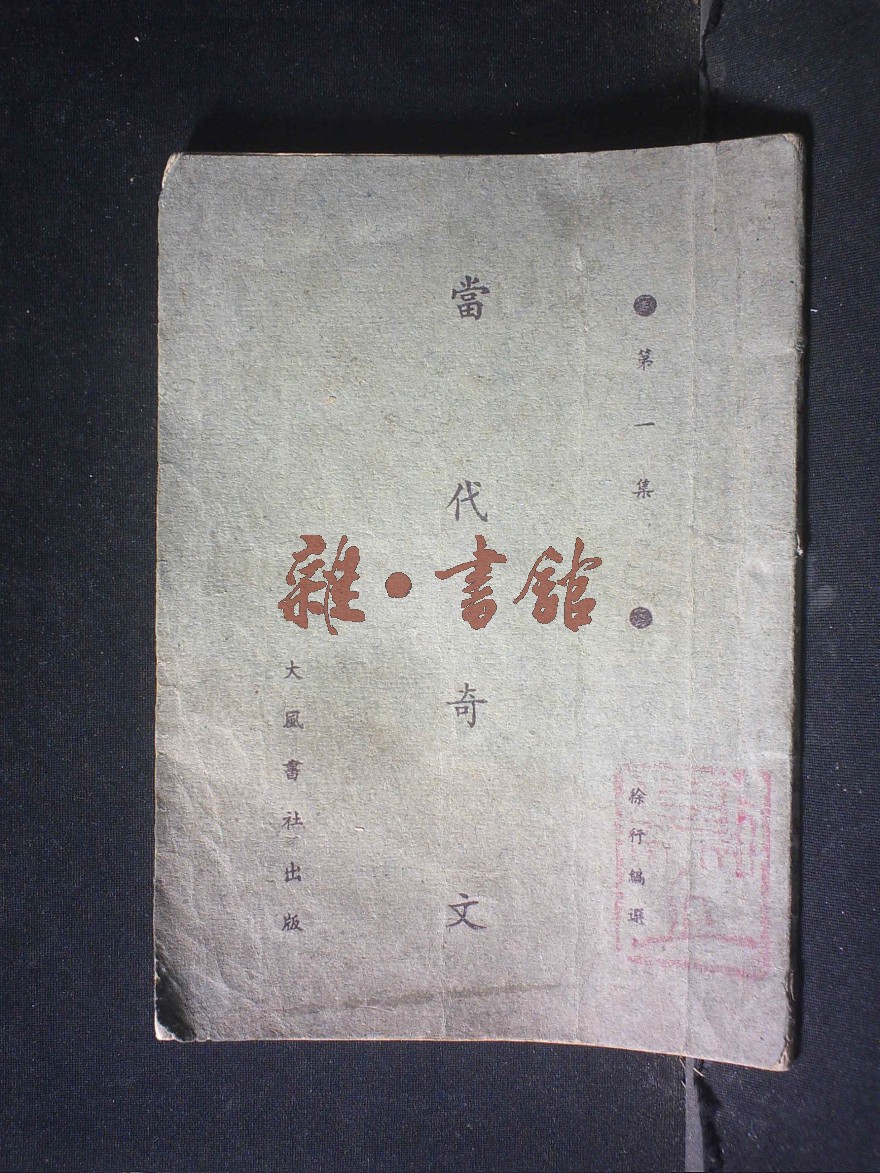 第一集
徐行編選
當代奇文
大風書社出版
雜·書館